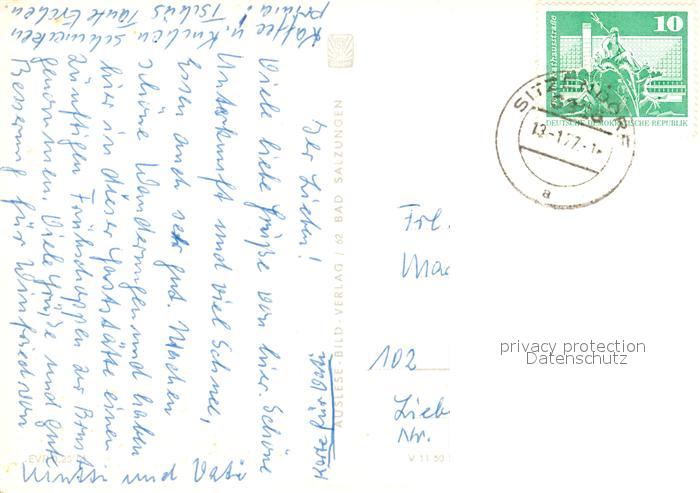 Ihr Lieben!
Viele liebe Grüße von hier. Schöne
Unterkunft und viel Schnee,
Essen auch sehr gut. Machen
schöne Wanderungen und haben
hier in dieser Gaststätte einen
zünftigen Frühschoppen zur Brust
genommen. Viele Grüße und gute
Besserung für Winfried von
Mutti und Vati
Kaffee u. Kuchen schmecken
prima! Tschüs Tante
AUSLESE-BILD-VERLAG / 62 BAD SALZUNGEN
10
DEUTSCHE DEMOKRATISCHE REPUBLIK
SITZENDORF
13-1.77-1
a
Frl.
102
Lieb
Nr.
V 11 50
privacy protection
Datenschutz